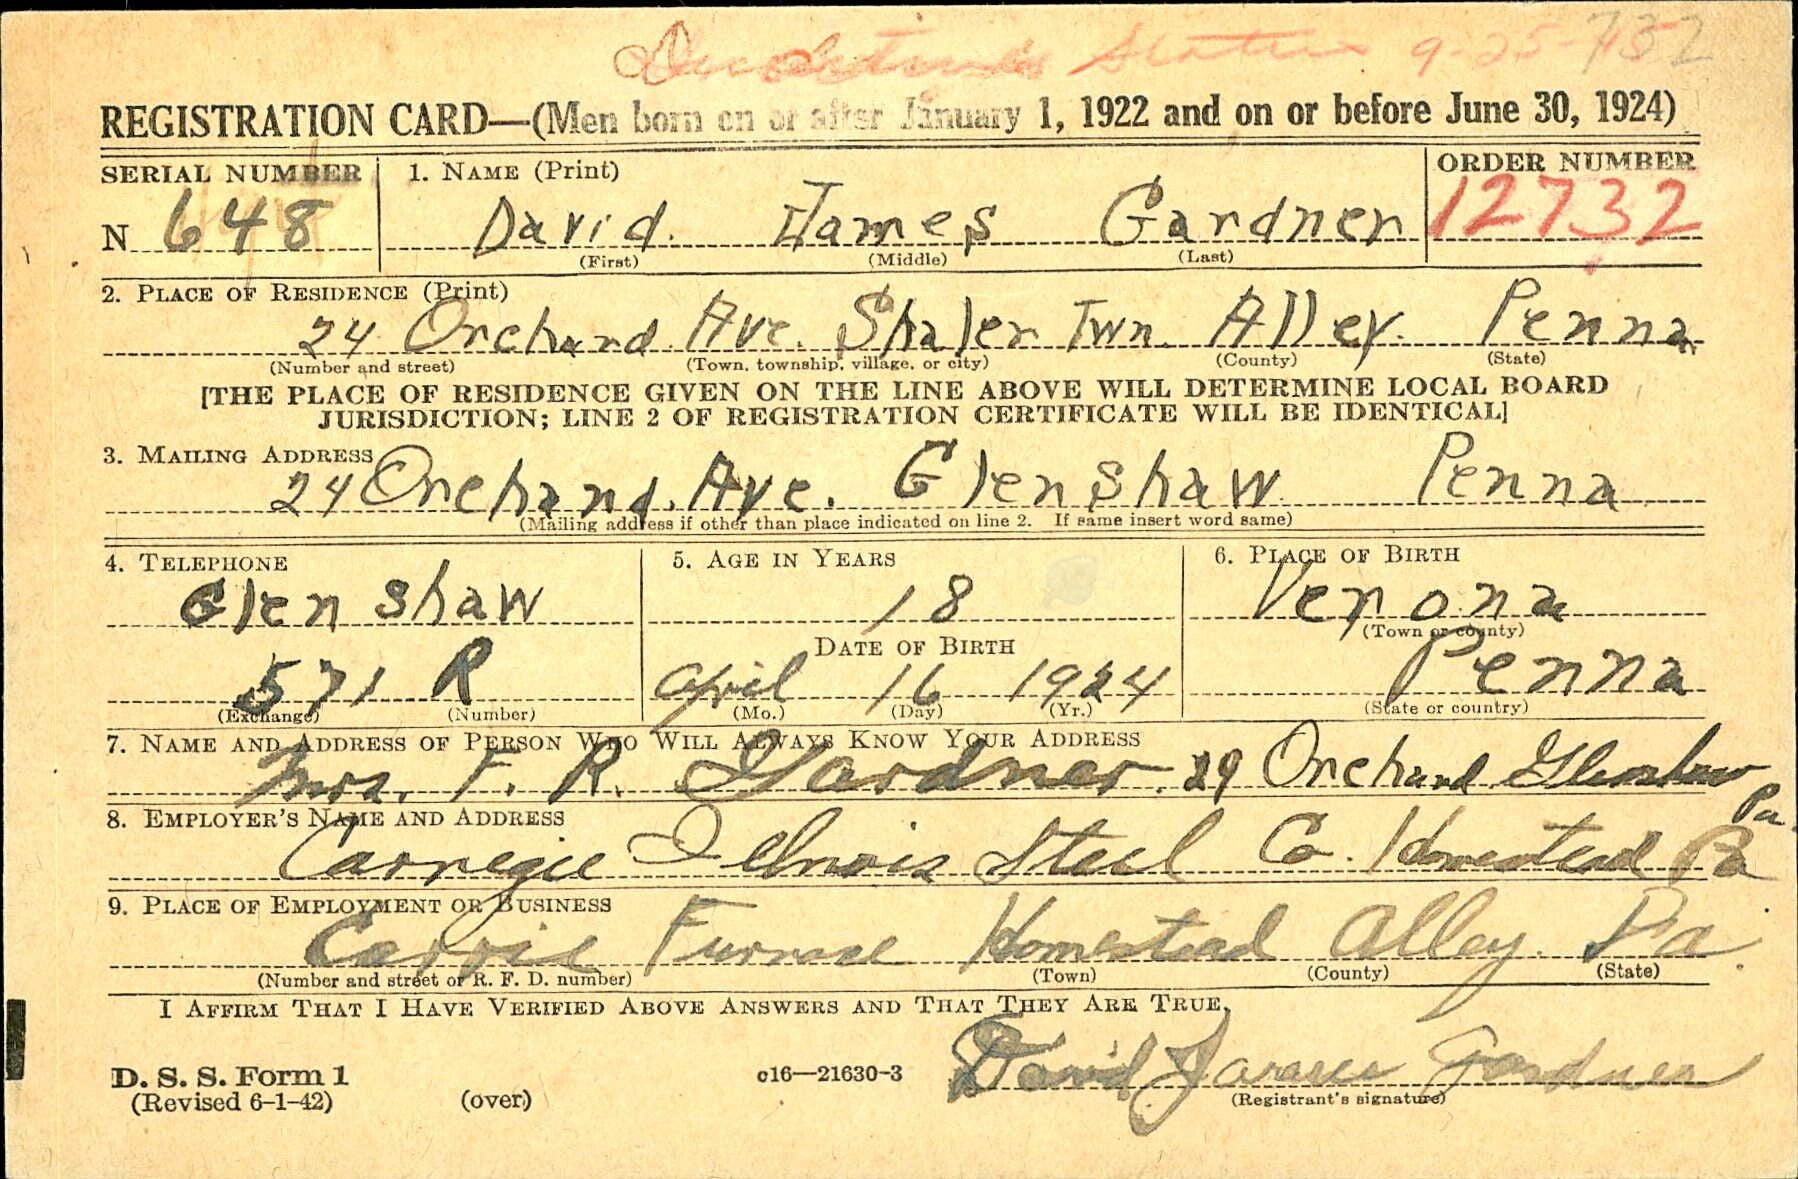 9-25-45 732
REGISTRATION CARD—(Men born on or after January 1, 1922 and on or before June 30, 1924)
SERIAL NUMBER 1. NAME (Print) ORDER NUMBER
N 648 David James Gardner 12732
(First) (Middle) (Last)
2. PLACE OF RESIDENCE (Print)
24 Orchard Ave. Shaler Twn. Alley. Penna
(Number and street) (Town, township, village, or city) (County) (State)
[THE PLACE OF RESIDENCE GIVEN ON THE LINE ABOVE WILL DETERMINE LOCAL BOARD
JURISDICTION; LINE 2 OF REGISTRATION CERTIFICATE WILL BE IDENTICAL]
3. MAILING ADDRESS
24 Orchard. Ave. Glenshaw Penna
(Mailing address if other than place indicated on line 2. If same insert word same)
4. TELEPHONE 5. AGE IN YEARS 6. PLACE OF BIRTH
Glenshaw 18 Verona
DATE OF BIRTH (Town or county)
571 R April 16 1924 Penna
(Exchange) (Number) (Mo.) (Day) (Yr.) (State or country)
7. NAME AND ADDRESS OF PERSON WHO WILL ALWAYS KNOW YOUR ADDRESS
Mrs. F. R. Gardner. Orchard Glenshaw Pa.
8. EMPLOYER'S NAME AND ADDRESS
Carnegie Illinois Steel Co. Homestead Pa
9. PLACE OF EMPLOYMENT OR BUSINESS
Carrie Furnace Homestead Alley. Pa.
(Number and street or R. F. D. number) (Town) (County) (State)
I AFFIRM THAT I HAVE VERIFIED ABOVE ANSWERS AND THAT THEY ARE TRUE.
David James Gardner
D. S. S. Form 1 c16—21630-3
(Revised 6-1-42) (over) (Registrant's signature)